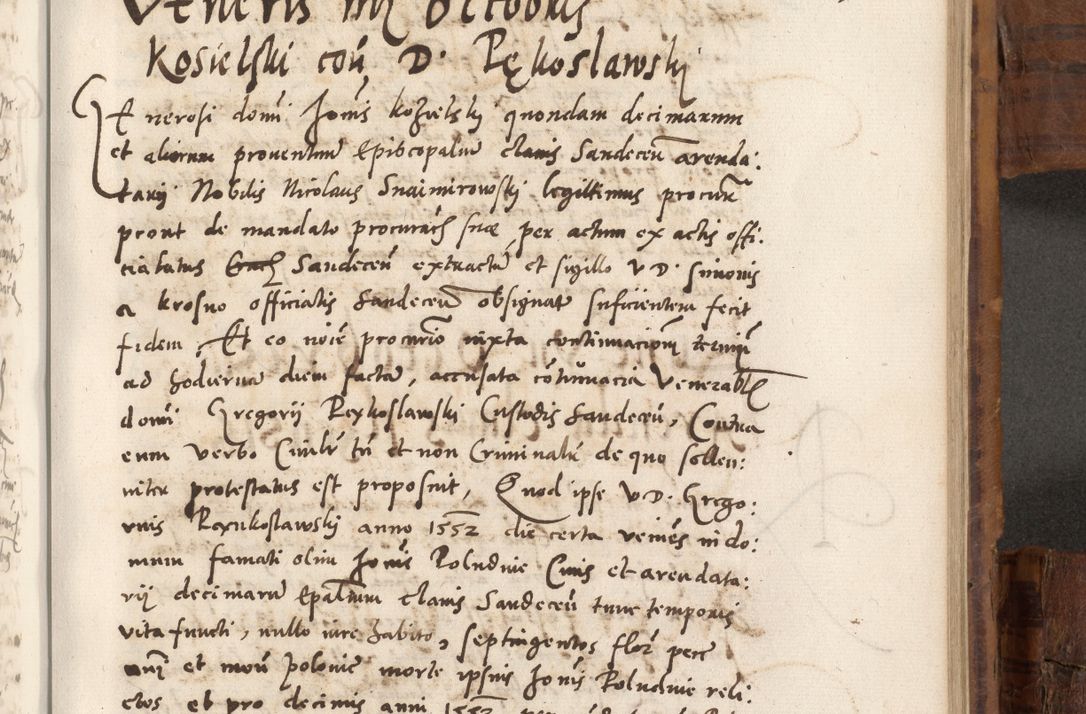 Veneris iiij Octobris
Kosielski coñ D. Rękoslawski
Generosi domi Joñis Kozielskj quondam decimarum
et aliorum prouentuũ Episcopaliũ clauis Sandeceñ arenda:
tarij Nobilis Nicolaus Snaimirowskj legittimus procurãt
prout de mandato procurãis suae, per actum ex actis offi:
cialatus Sandeceñ extractũ et sigillo V D. Simonis
a krosno officialis Sandeceñ obsignat suficientem fecit
fidem, Et eo noiẽ procurõio iuxta continuacioñ termiñ
ad hodiernã diem factã, accusata cõtumacia Venerabĩl
domi Gregorij Rexkoslawski Custodis Sandeceñ, Contra
eum verbo Ciuilĩ tñ et non Criminalĩ de quo sollen:
niter protestatus est proposuit, Quod ipse V D. Grego:
rius Rexnkoslawskj anno 1552 die certa veniẽs in do:
mum famati olim Joñis Roludnie Ciuis et arendata:
rij decimarũ Epalium clauis Sandeceñ tunc temporis
vita functi, nullo iure habito, septingentos flor̃ pecc
et moñ poloniẽ morte ipsius Joñis Roludnie reli:
ctos et pro decimis anni 1552